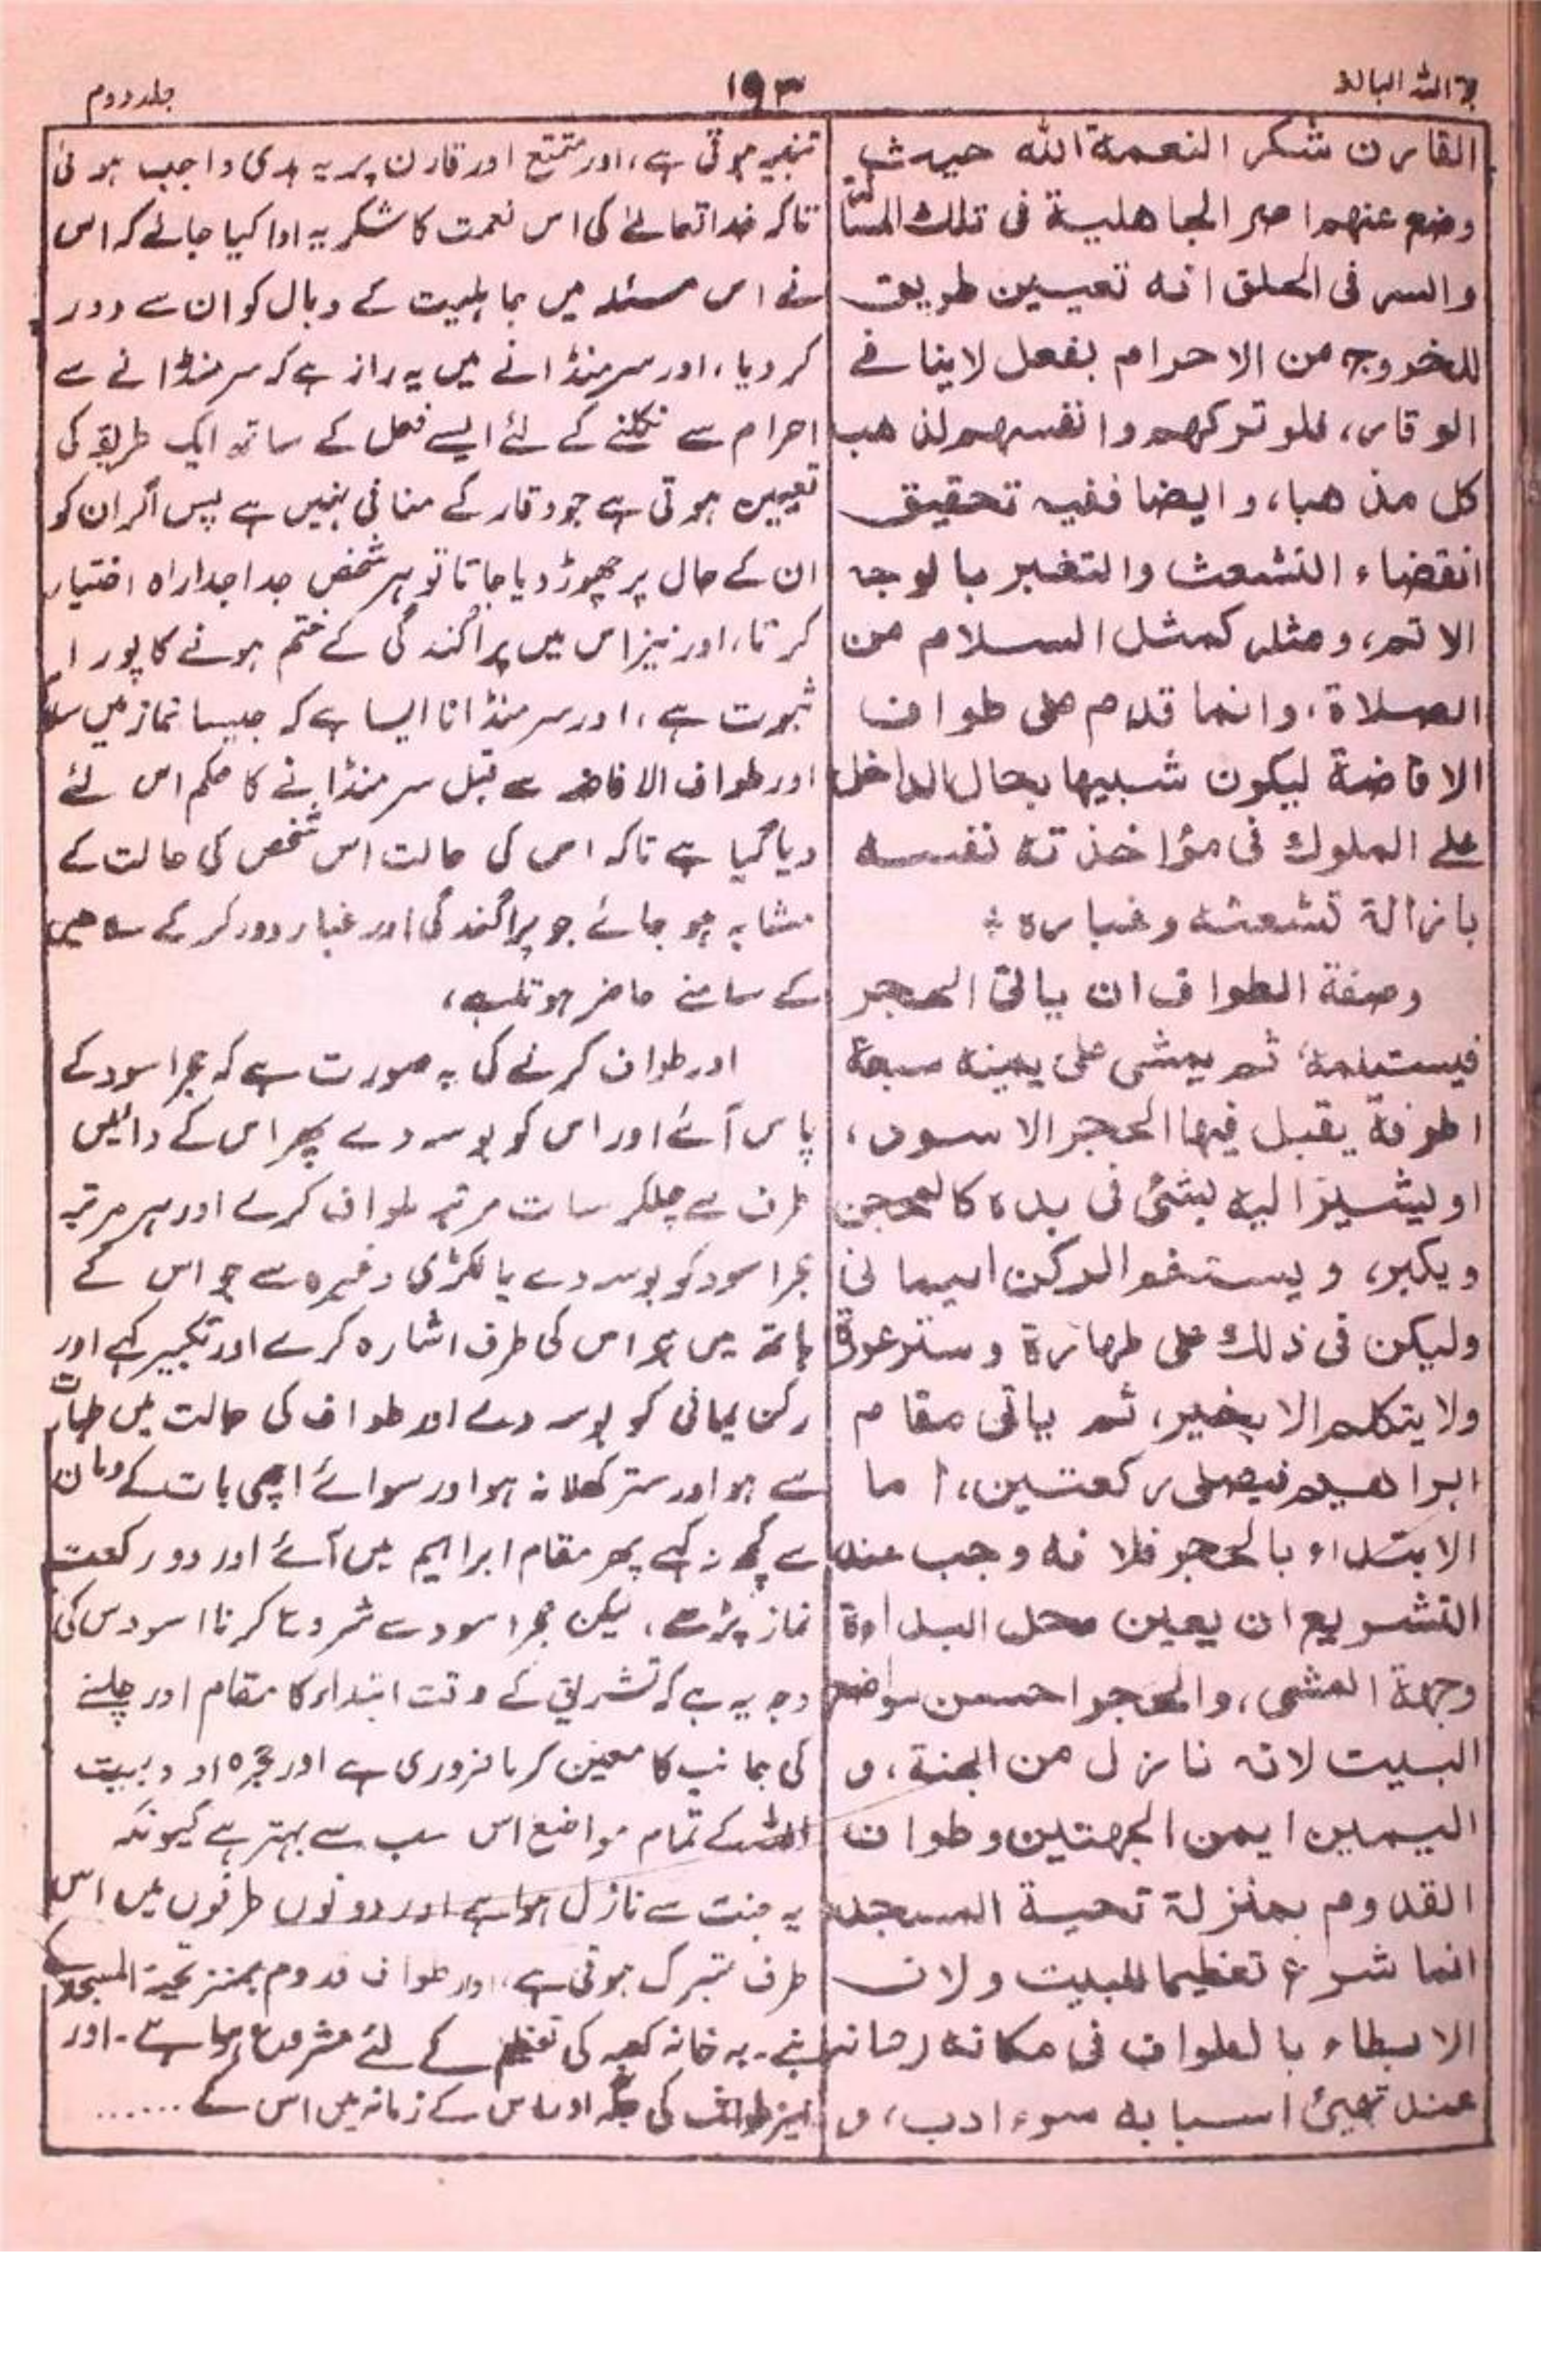 حجة اللہ البالغہ
۱۹۳
جلد دوم
القارن شكر النعمة الله حيث
وضع عنهم اصر الجاهلية فى تلك المسئلة
والسر فى الحلق انه تعيين طريق
للخروج من الاحرام بفعل لا ينافے
الوقار، فلو تركهم وانفسهم لذهب
كل مذهبا، وايضا ففيه تحقيق
انقضاء التشعث والتغبر بالوجه
الاتم، ومثله كمثل السلام من
الصلاة، وانما قدم على طواف
الافاضة ليكون شبيها بحال الداخل
علے الملوك فى مؤاخذته نفسه
بازالة تشعثه وغباره ؞
وصفة الطواف ان ياتى الحجر
فيستلمه، ثم يمشى على يمينه سبعة
اطوفة يقبل فيها الحجر الاسود،
او يشير اليه بشئ فى يده كالمحجن
ويكبر، ويستلم الركن اليمانى
وليكن فى ذلك على طهارة وستر عورة
ولا يتكلم الا بخير، ثم ياتى مقام
ابراهيم فيصلى ركعتين، اما
الابتداء بالحجر فلانه وجب عند
التشريع ان يعين محل البداءة
وجهة المشى، والحجر احسن مواضع
البيت لانه نازل من الجنة، و
اليمين ايمن الجهتين وطواف
القدوم بمنزلة تحية المسجد
انما شرع تعظيما للبيت ولان
الابطاء بالطواف فى مكانه زمانه
عند تهيئ اسبابه سوء ادب، و
تنبیہ ہوتی ہے، اور متمتع اور قارن پر یہ ہدی واجب ہوئی
تاکہ خدا تعالیٰ کی اس نعمت کا شکریہ ادا کیا جائے کہ اس
نے اس مسئلہ میں جاہلیت کے وبال کو ان سے دور
کر دیا، اور سر منڈانے میں یہ راز ہے کہ سر منڈوانے سے
احرام سے نکلنے کے لئے ایسے فعل کے ساتھ ایک طریقہ کی
تعیین ہوتی ہے جو وقار کے منافی نہیں ہے پس اگر ان کو
ان کے حال پر چھوڑ دیا جاتا تو ہر شخص جدا جدا راہ اختیار
کرتا، اور نیز اس میں پراگندگی کے ختم ہونے کا پورا
ثبوت ہے، اور سر منڈانا ایسا ہے کہ جیسا نماز میں سلام
اور طواف الافاضہ سے قبل سر منڈانے کا حکم اس لئے
دیا گیا ہے تاکہ اس کی حالت اس شخص کی حالت کے
مشابہ ہو جائے جو پراگندگی اور غبار دور کر کے
کے سامنے حاضر ہوتا ہے،
اور طواف کرنے کی یہ صورت ہے کہ حجر اسود کے
پاس آئے اور اس کو بوسہ دے پھر اس کے دائیں
طرف سے چلکر سات مرتبہ طواف کرے اور ہر مرتبہ
حجر اسود کو بوسہ دے یا لکڑی وغیرہ سے جو اس کے
ہاتھ میں ہو اس کی طرف اشارہ کرے اور تکبیر کہے اور
رکن یمانی کو بوسہ دے اور طواف کی حالت میں طہارت
سے ہو اور ستر کھلا نہ ہو اور سوائے اچھی بات کے زبان
سے کچھ نہ کہے پھر مقام ابراہیم میں آئے اور دو رکعت
نماز پڑھے، لیکن حجر اسود سے شروع کرنا سو اس کی
وجہ یہ ہے کہ تشریع کے وقت ابتداء کا مقام اور چلنے
کی جانب کا معین کرنا ضروری ہے اور بیت
اللہ کے تمام مواضع اس سب سے بہتر ہے کیونکہ
یہ جنت سے نازل ہوا ہے اور دونوں طرفوں میں اس
طرف متبرک ہوتی ہے، اور طواف قدوم بمنزلہ تحیۃ المسجد کے
ہے۔ یہ خانہ کعبہ کی تعظیم کے لئے مشروع ہوا ہے۔ اور
نیز طواف کی جگہ اور اس کے زمانہ میں اس کے ......